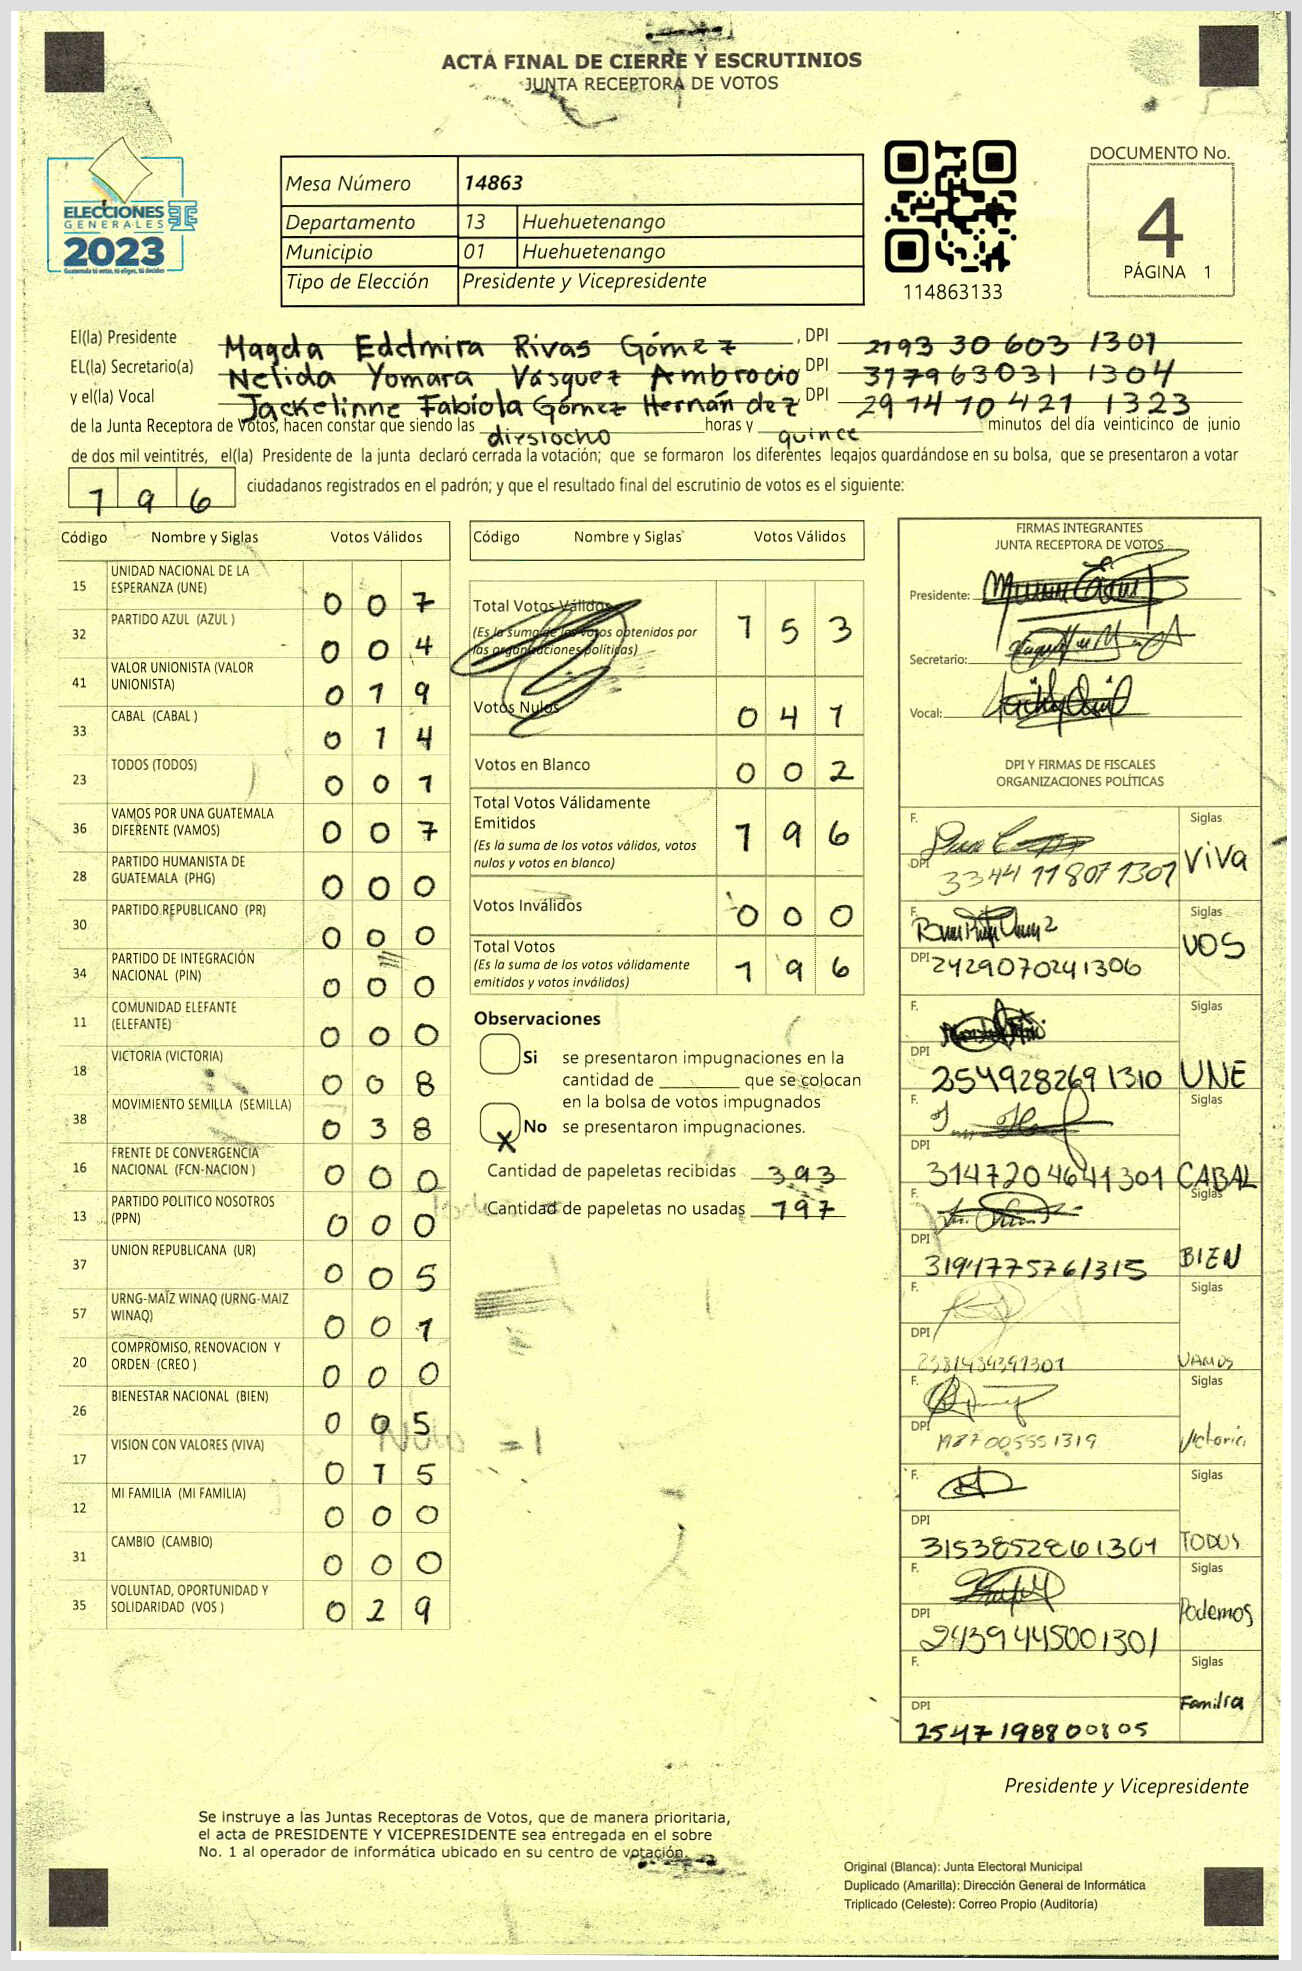 ACTA FINAL DE CIERRE Y ESCRUTINIOS
JUNTA RECEPTORA DE VOTOS
ELECCIONES
GENERALES
2023
Guatemala tú votas, tú eliges, tú decides
Mesa Número 14863
Departamento 13 Huehuetenango
Municipio 01 Huehuetenango
Tipo de Elección Presidente y Vicepresidente
114863133
DOCUMENTO No.
4
PÁGINA 1
El(la) Presidente Magda Edelmira Rivas Gómez, DPI 2193 30 603 1301
EL(la) Secretario(a) Nelida Yomara Vásquez Ambrocio DPI 317963031 1304
y el(la) Vocal Jackelinne Fabiola Gómez Hernández DPI 2914 10 421 1323
de la Junta Receptora de Votos, hacen constar que siendo las dieslocho horas y quince minutos del día veinticinco de junio
de dos mil veintitrés, el(la) Presidente de la junta declaró cerrada la votación; que se formaron los diferentes legajos guardándose en su bolsa, que se presentaron a votar
196 ciudadanos registrados en el padrón; y que el resultado final del escrutinio de votos es el siguiente:
Código Nombre y Siglas Votos Válidos
15 UNIDAD NACIONAL DE LA ESPERANZA (UNE) 007
32 PARTIDO AZUL (AZUL ) 004
41 VALOR UNIONISTA (VALOR UNIONISTA) 019
33 CABAL (CABAL ) 014
23 TODOS (TODOS) 001
36 VAMOS POR UNA GUATEMALA DIFERENTE (VAMOS) 007
28 PARTIDO HUMANISTA DE GUATEMALA (PHG) 000
30 PARTIDO REPUBLICANO (PR) 000
34 PARTIDO DE INTEGRACIÓN NACIONAL (PIN) 000
11 COMUNIDAD ELEFANTE (ELEFANTE) 000
18 VICTORIA (VICTORIA) 008
38 MOVIMIENTO SEMILLA (SEMILLA) 038
16 FRENTE DE CONVERGENCIA NACIONAL (FCN-NACION ) 000
13 PARTIDO POLITICO NOSOTROS (PPN) 000
37 UNION REPUBLICANA (UR) 005
57 URNG-MAÍZ WINAQ (URNG-MAIZ WINAQ) 001
20 COMPROMISO, RENOVACION Y ORDEN (CREO ) 000
26 BIENESTAR NACIONAL (BIEN) 005
17 VISION CON VALORES (VIVA) 015
12 MI FAMILIA (MI FAMILIA) 000
31 CAMBIO (CAMBIO) 000
35 VOLUNTAD, OPORTUNIDAD Y SOLIDARIDAD (VOS ) 029
Nulo = 1
Código Nombre y Siglas Votos Válidos
Total Votos Válidos 153
(Es la suma de los votos obtenidos por
las organizaciones políticas)
Votos Nulos 041
Votos en Blanco 002
Total Votos Válidamente
Emitidos 196
(Es la suma de los votos válidos, votos
nulos y votos en blanco)
Votos Inválidos 000
Total Votos 196
(Es la suma de los votos válidamente
emitidos y votos inválidos)
Observaciones
Si se presentaron impugnaciones en la
cantidad de ________ que se colocan
en la bolsa de votos impugnados
X No se presentaron impugnaciones.
Cantidad de papeletas recibidas 393
Cantidad de papeletas no usadas 197
FIRMAS INTEGRANTES
JUNTA RECEPTORA DE VOTOS
Presidente:
Secretario:
Vocal:
DPI Y FIRMAS DE FISCALES
ORGANIZACIONES POLÍTICAS
F. Siglas
DPI 3344 11807 1301 VIVA
F. Siglas
DPI 2429070241306 VOS
F. Siglas
DPI 2549282691310 UNE
F. Siglas
DPI 3147204641301 CABAL
F. Siglas
DPI 3191775761315 BIEN
F. Siglas
DPI 2381434391301 VAMOS
F. Siglas
DPI 1987005551319 Victoria
F. Siglas
DPI 3153852861301 TODOS
F. Siglas
DPI 2439445001301 Podemos
F. Siglas
DPI 2547198800805 Familia
Presidente y Vicepresidente
Se instruye a las Juntas Receptoras de Votos, que de manera prioritaria,
el acta de PRESIDENTE Y VICEPRESIDENTE sea entregada en el sobre
No. 1 al operador de informática ubicado en su centro de votación.
Original (Blanca): Junta Electoral Municipal
Duplicado (Amarilla): Dirección General de Informática
Triplicado (Celeste): Correo Propio (Auditoría)